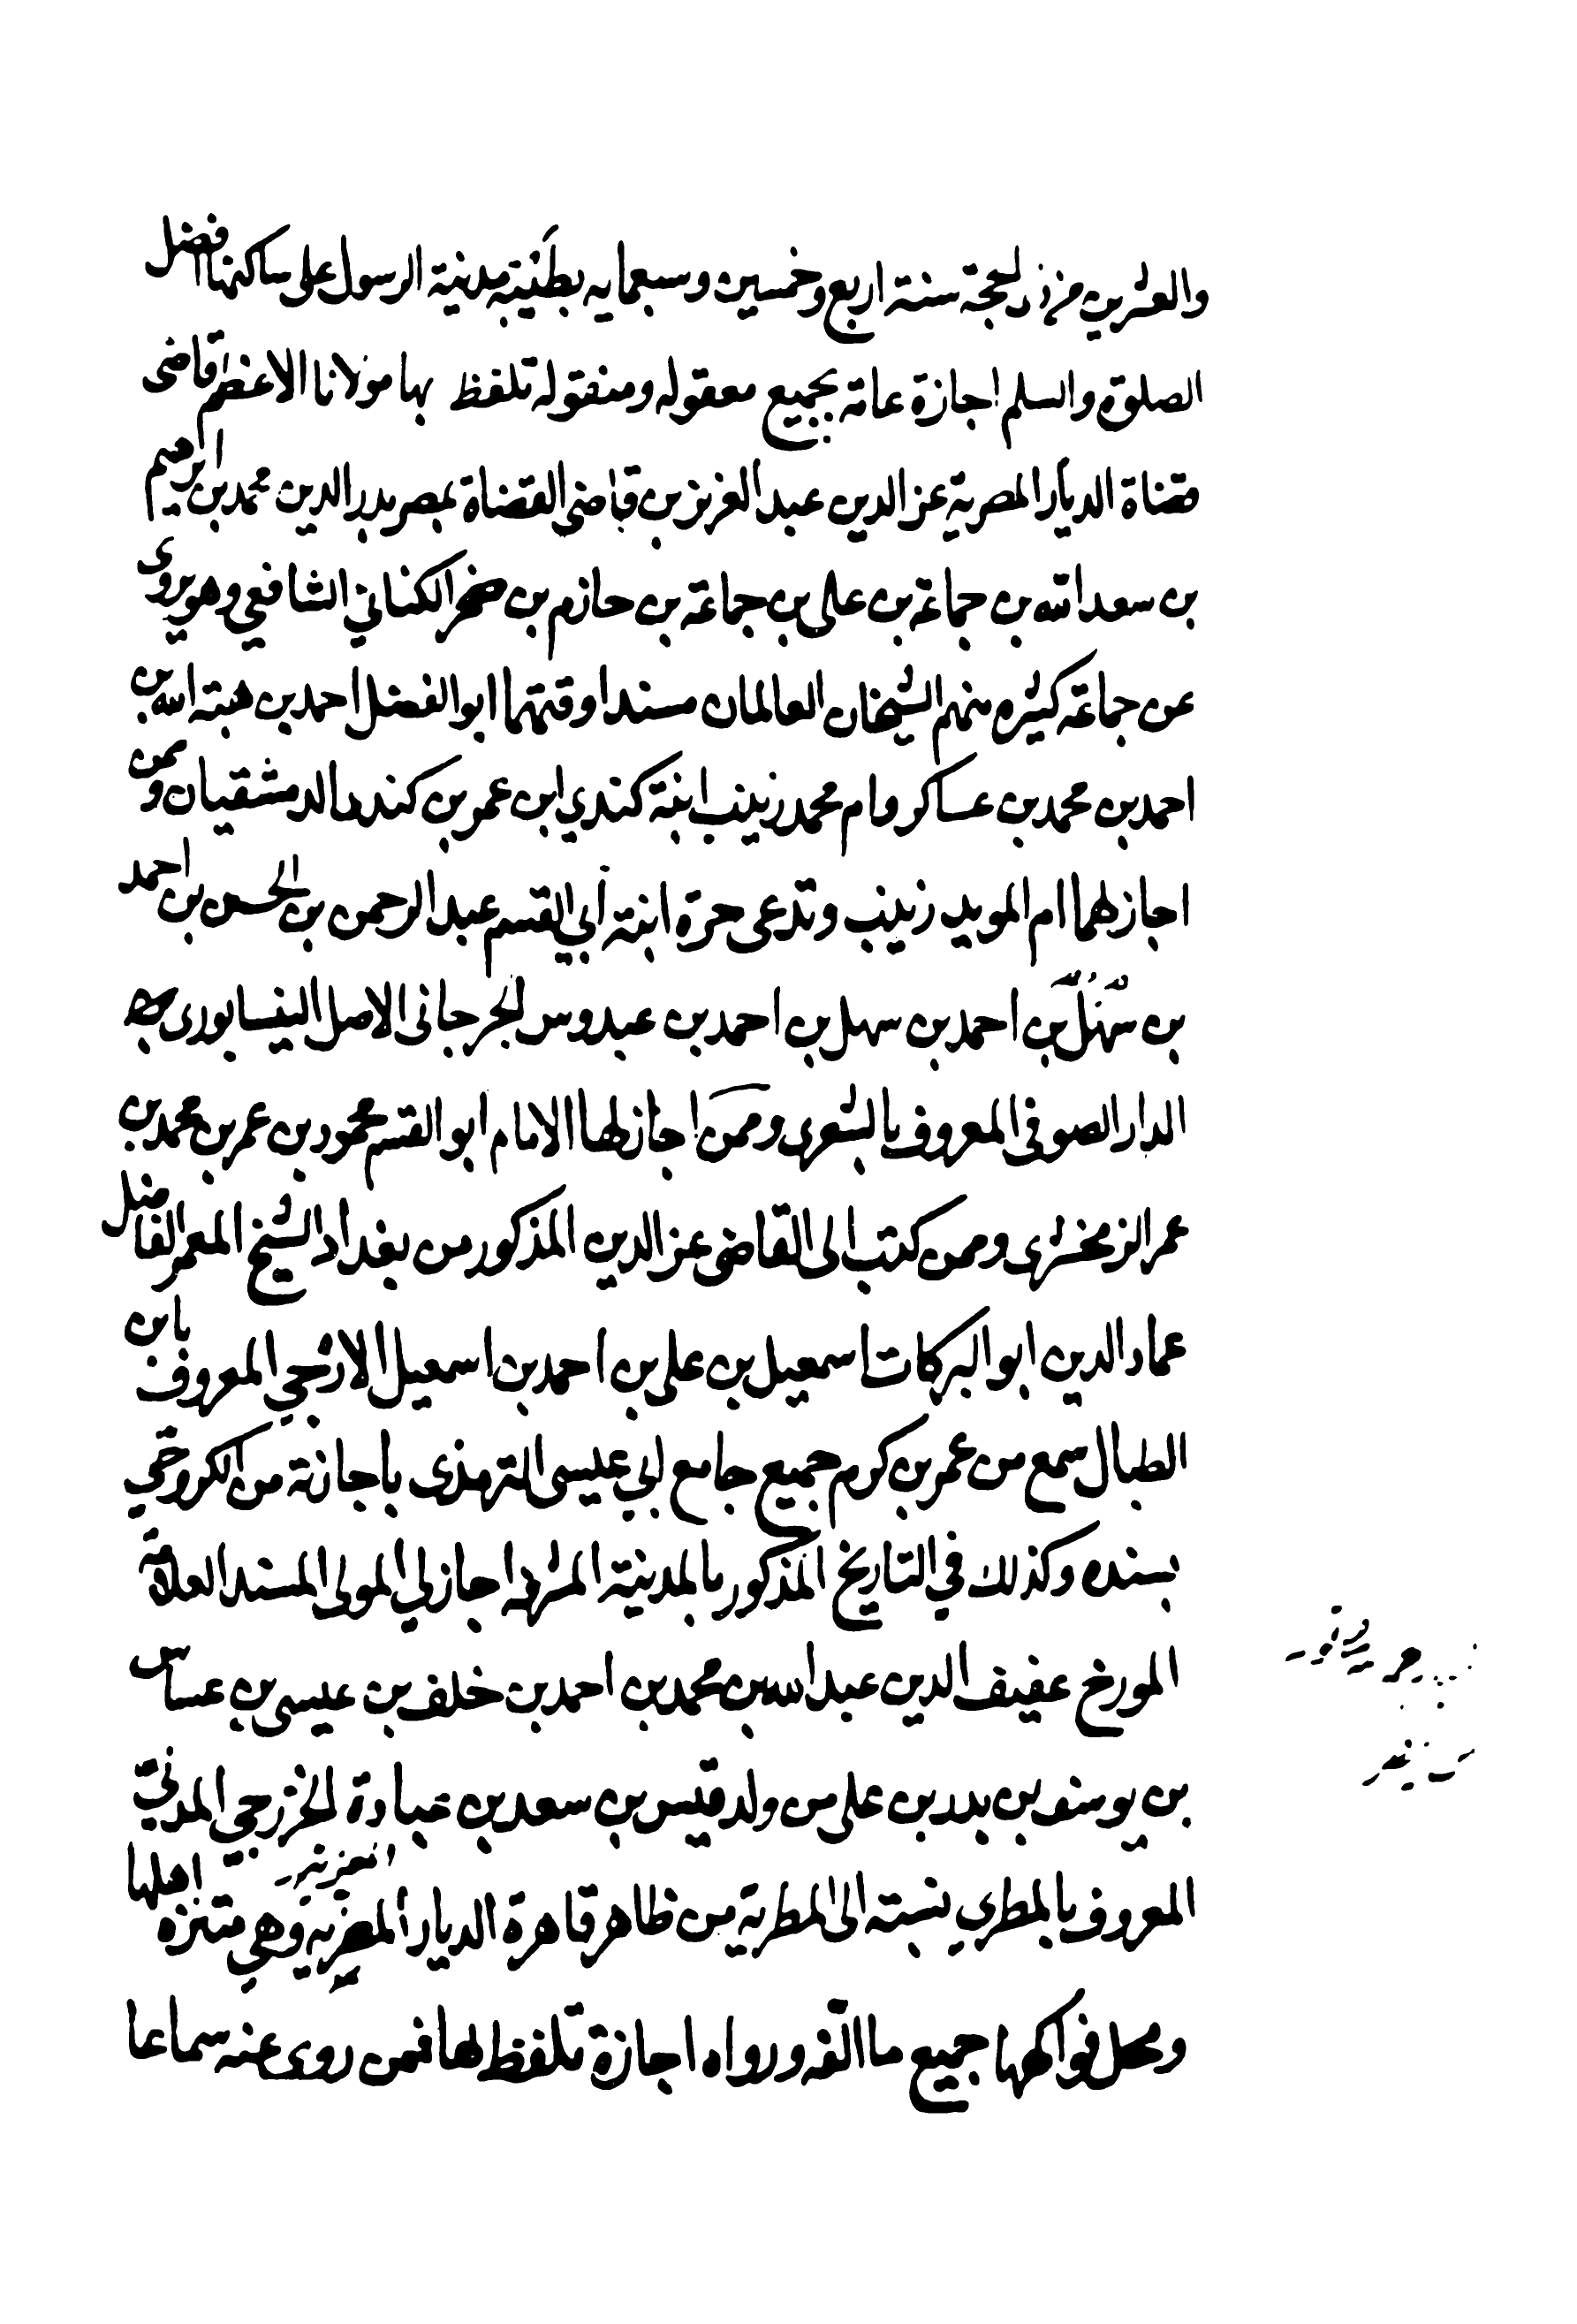 والعشرين من ذى الحجة سنة اربع وخمسين وسبعمايه بطَيْبَة مدينة الرسول على ساكنها افضل
الصلوة والسلم اجازة عامة بجميع معقوله ومنقوله تلفظ بها مولانا الاعظم قاضى
قضاة الديار المصرية عز الدين عبد العزيز بن قاضى القضاة بمصر بدر الدين محمد بن ابرهيم
بن سعد الله بن جماعة بن على بن جماعة بن حازم بن صخر الكناني الشافعي وهو يروى
عن جماعة كثيره منهم الشيخان العالمان مسندا وقتهما ابو الفضل احمد بن هبة الله بن
احمد بن محمد بن عساكر وام محمد زينب ابنة كندي ابن عمر بن كندى الدمشقيان وممن
اجاز لهما ام المويد زينب وتدعى حرة ابنة أبي القسم عبد الرحمن بن الحسن بن احمد
بن سَهْل بن احمد بن سهل بن احمد بن عبدوس الجرجانى الاصل النيسابورى
الدار الصوفى المعروف بالشعرى وممن اجاز لها الامام ابو القسم محمود بن عمر بن محمد بن
عمر الزمخشرى وممن كتب الى القاضى عز الدين المذكور من بغداد الشيخ المعمر الفاضل
عماد الدين ابو البركات اسمعيل بن على بن احمد بن اسمعيل الازجي المعروف بابن
الطبال سمع من عمر بن كرم جميع جامع ابي عيسى الترمذى باجازته من الكروخي
بسنده وكذلك في التاريخ المذكور بالمدينة المشرفه اجاز لي المولى المسند العلامة
المورخ عفيف الدين عبد الله بن محمد بن احمد بن خلف بن عيسى بن عساس
بن يوسف بن بدر بن على من ولد قيس بن سعد بن عبادة الخزرجي المدني
المعروف بالمطري نسبته الى المطرية من ظاهر قاهرة الديار المصرية وهي متنزه اهلها
ومحل فواكهها جميع ما الفه ورواه اجازة تلفظ لها فمن روى عنه سماعا